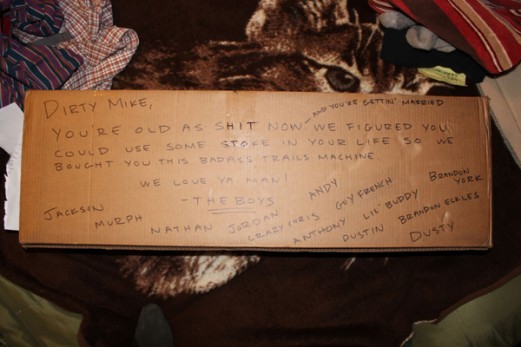 DIRTY MIKE,
AND YOU'RE GETTIN' MARRIED
YOU'RE OLD AS SHIT NOW WE FIGURED YOU
COULD USE SOME STOKE IN YOUR LIFE SO WE
BOUGHT YOU THIS BADASS TRAILS MACHINE.
WE LOVE YA MAN!
- THE BOYS
ANDY
GUY FRENCH
BRANDON
YORK
JACKSON
MURPH
NATHAN
JORDAN
CRAZY CHRIS
ANTHONY
LIL' BUDDY
DUSTIN
BRANDON ECKLES
DUSTY